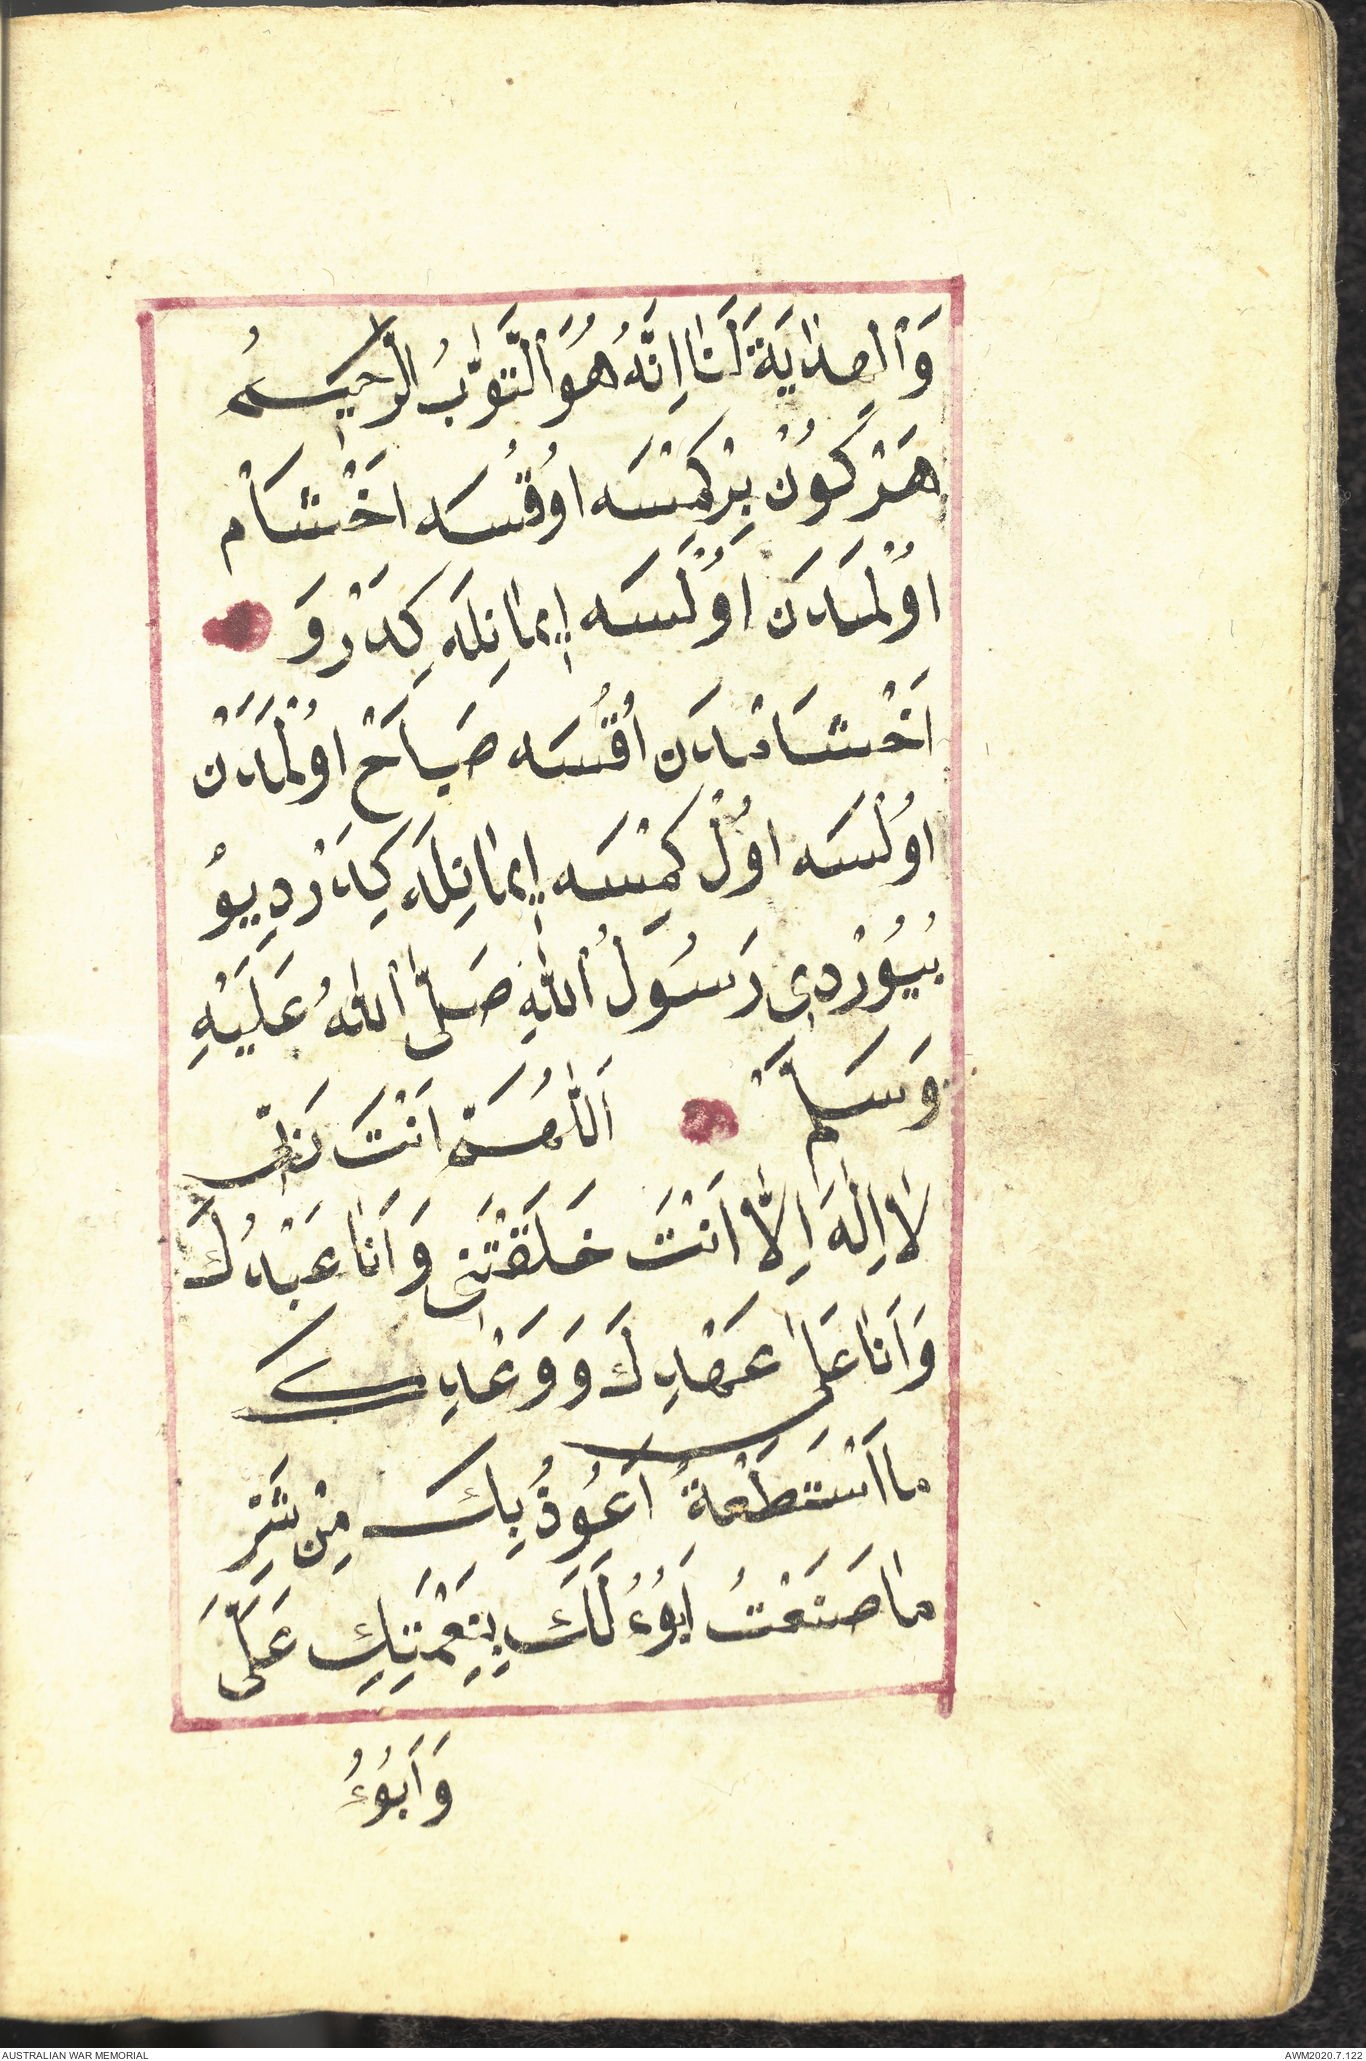 وَالْهِدٰايَةَ لَنٰا اِنَّهُ هُوَ التَّوّٰبُ الرَّحٖيمُ
هَرْ كُونْ بِرْ كِمْسَه اوُقُسَه اَخْشَامْ
اوُلْمَدَن اوُلْسَه اٖيمٰانِلَه كِدَرْ وَ
اَخْشَامْدَن اُقُسَه صَبَاحْ اوُلْمَدَنْ
اوُلْسَه اوُلْ كِمْسَه اٖيمٰانِلَه كِدَرْ دِيوُ
بُيُوُرْدِى رَسُولُ اللّٰهِ صَلَّى اللّٰهُ عَلَيْهِ
وَسَلَّمْ اَللّٰهُمَّ اَنْتَ رَبّٖى
لٰا اِلٰهَ اِلّٰا اَنْتَ خَلَقْتَنٖى وَاَنٰا عَبْدُكَ
وَاَنٰا عَلٰى عَهْدِكَ وَوَعْدِكَ
مااَسْتَطَعْةُ اَعُوِذُ بِكَ مِنْ شَرِّ
مٰا صَنَعْتُ اَبُوُءُ لَكَ بِنِعْمَتِكِ عَلَىَّ
وَاَبُوُءُ
AUSTRALIAN WAR MEMORIAL
AWM2020.7.122